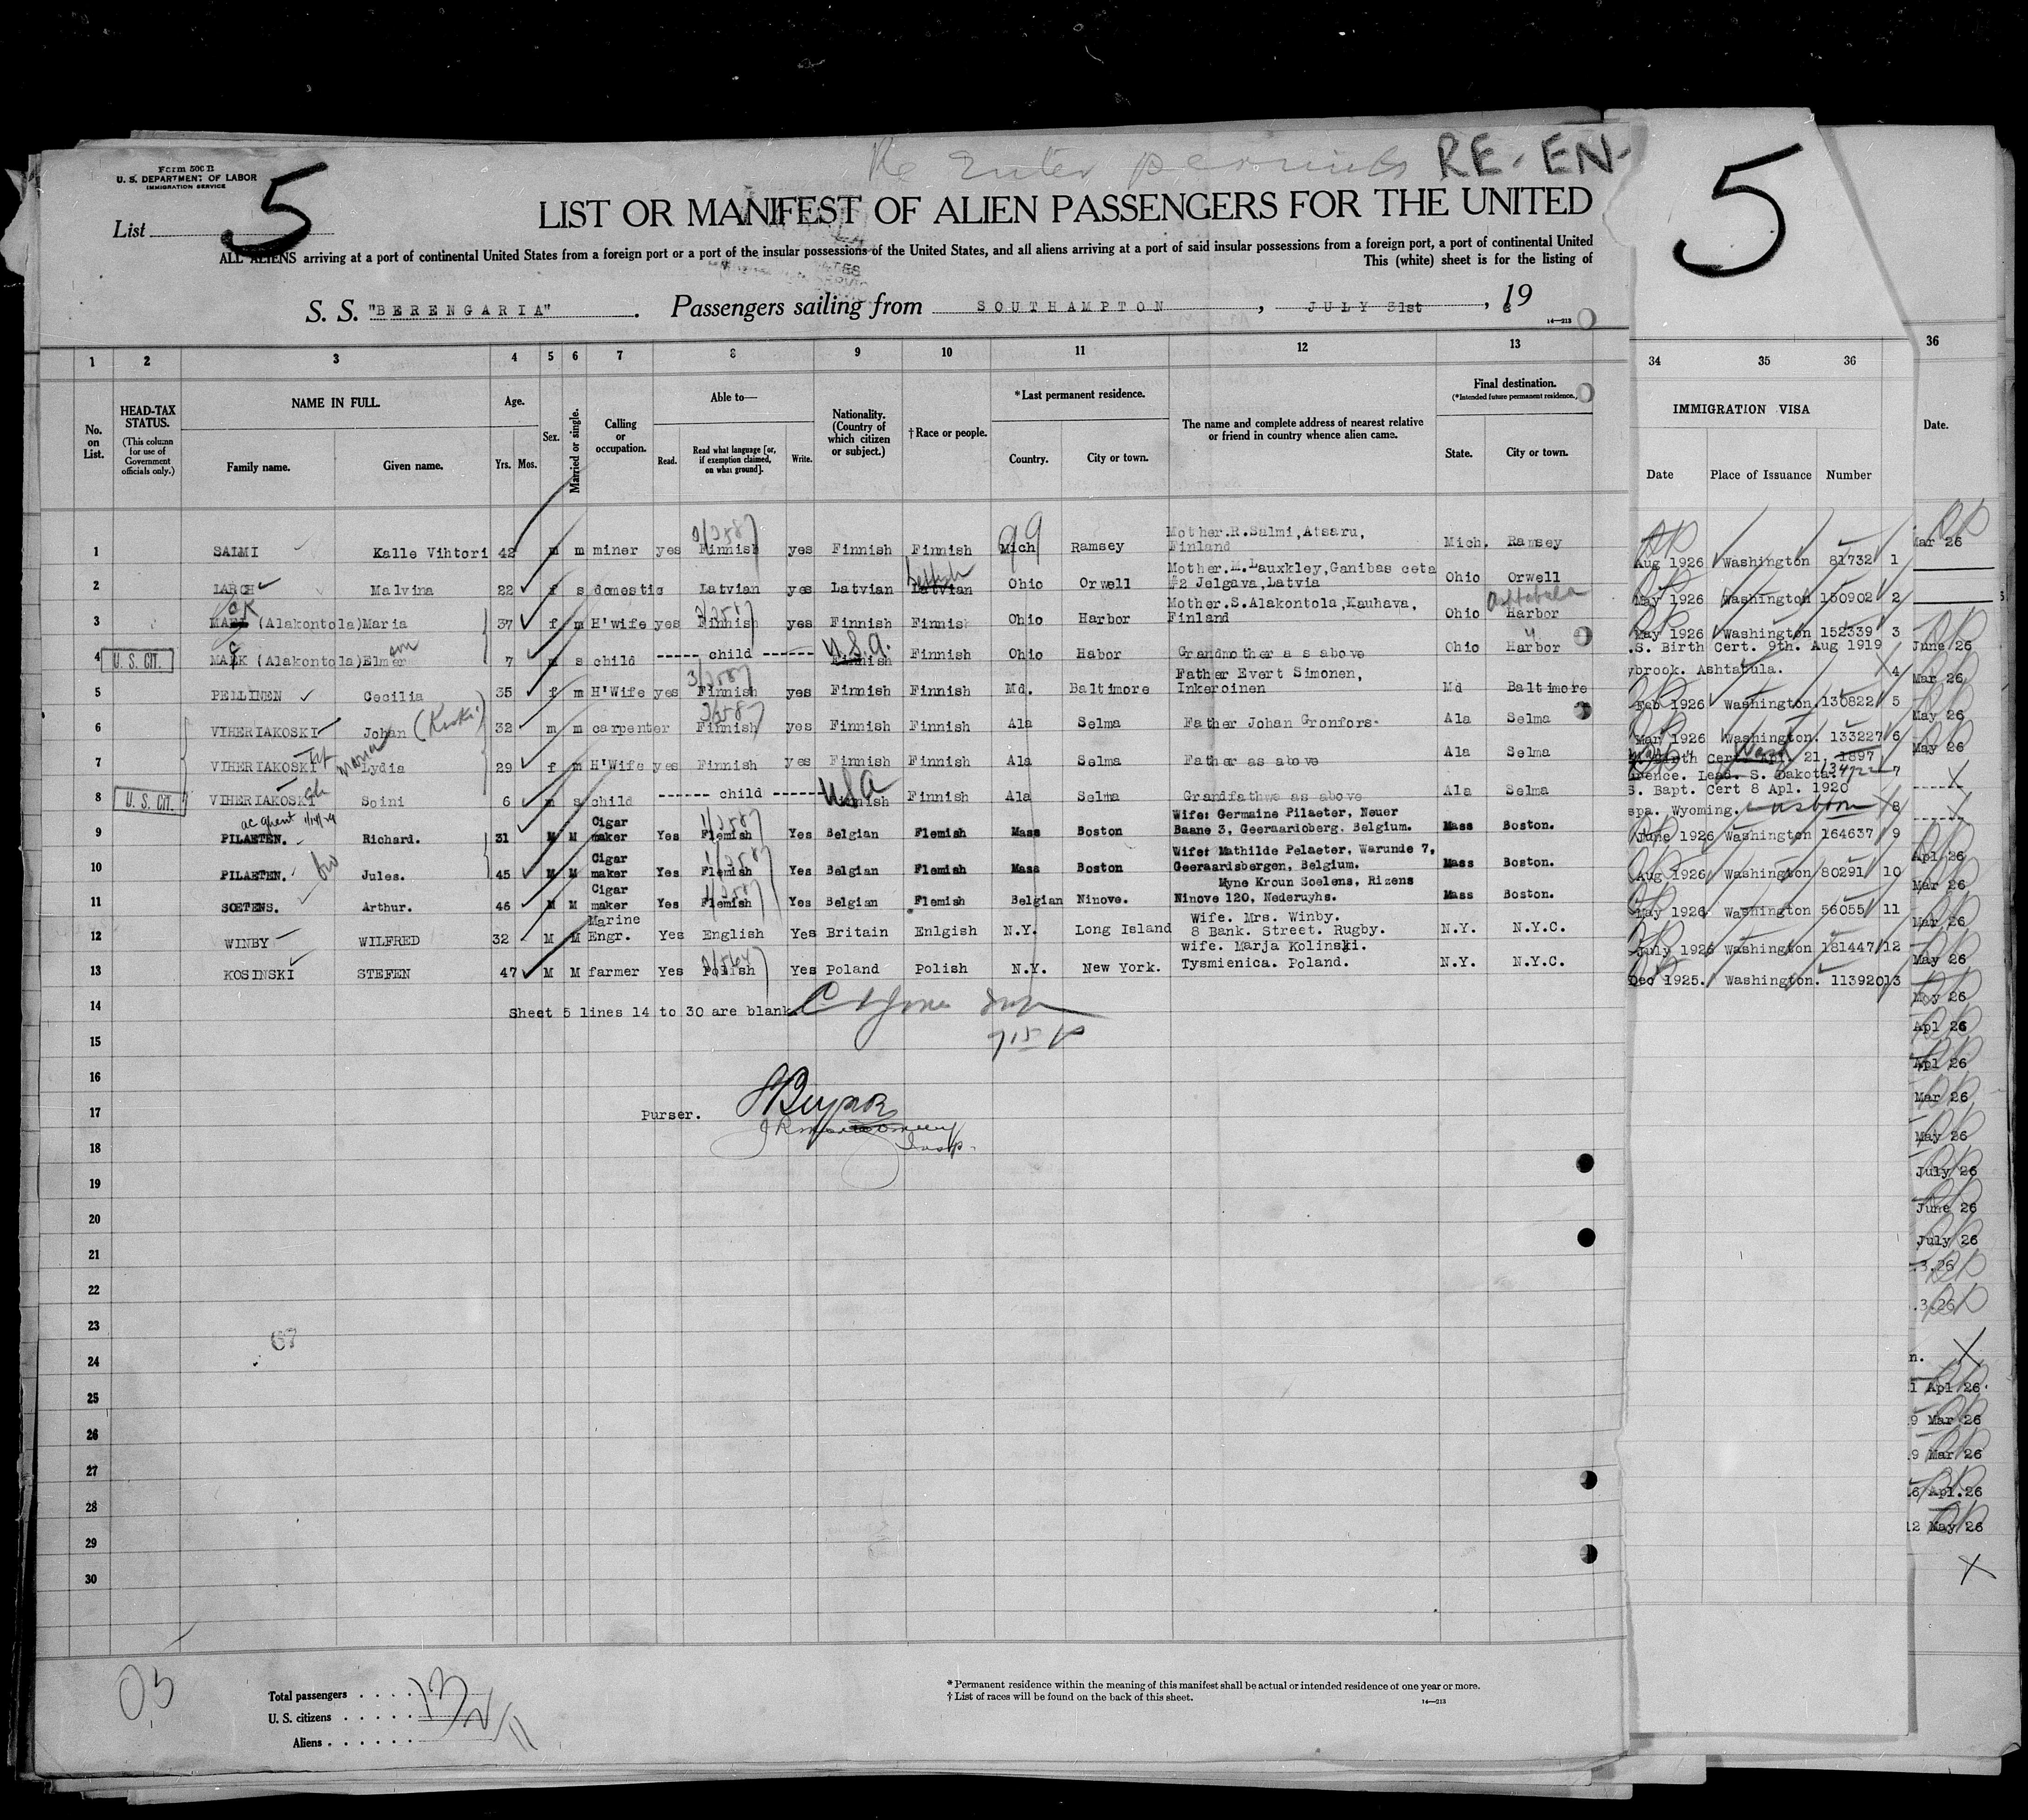 Re Enter permits RE-EN-
Form 500 B
U. S. DEPARTMENT OF LABOR
IMMIGRATION SERVICE
List 5
5
LIST OR MANIFEST OF ALIEN PASSENGERS FOR THE UNITED
ALL ALIENS arriving at a port of continental United States from a foreign port or a port of the insular possessions of the United States, and all aliens arriving at a port of said insular possessions from a foreign port, a port of continental United
This (white) sheet is for the listing of
S. S. "BERENGARIA". Passengers sailing from SOUTHAMPTON, JULY 31st, 19
14—213
1 2 3 4 5 6 7 8 9 10 11 12 13 34 35 36 36
No. on List.
HEAD-TAX STATUS.
(This column for use of Government officials only.)
NAME IN FULL.
Family name. Given name.
Age.
Yrs. Mos.
Sex.
Married or single.
Calling or occupation.
Able to—
Read. Read what language [or, if exemption claimed, on what ground]. Write.
Nationality. (Country of which citizen or subject.)
†Race or people.
*Last permanent residence.
Country. City or town.
The name and complete address of nearest relative or friend in country whence alien came.
Final destination.
(*Intended future permanent residence.)
State. City or town.
IMMIGRATION VISA
Date Place of Issuance Number
Date.
1 SAIMI Kalle Vihtori 42 m m miner yes Finnish yes Finnish Finnish Mich Ramsey Mother.R.Salmi,Atsaru, Finland Mich. Ramsey Aug 1926 Washington 81732 1
2 LARCH Malvina 22 f s domestic Latvian yes Latvian Latvian Ohio Orwell Mother.M.Lauxkley,Ganibas ceta #2 Jelgava,Latvia Ohio Orwell May 1926 Washington 150902 2
3 (Alakontola)Maria 37 f m H'wife yes Finnish yes Finnish Finnish Ohio Harbor Mother.S.Alakontola,Kauhava, Finland Ohio Ashtabula Harbor May 1926 Washington 152339 3
4 U. S. CIT. MAEK (Alakontola)Elmer 7 m s child ----- child ------ U.S.A. Finnish Finnish Ohio Habor Grandmother a s above Ohio Harbor .S. Birth Cert. 9th. Aug 1919 ybrook. Ashtabula. 4
5 PELLINEN Cecilia 35 f m H'Wife yes Finnish yes Finnish Finnish Md. Baltimore Father Evert Simonen, Inkeroinen Md Baltimore Feb 1926 Washington. 130822 5
6 VIHERIAKOSKI Johan (Koski) 32 m m carpenter Finnish yes Finnish Finnish Ala Selma Father Johan Gronfors- Ala Selma Mar 1926 Washington. 133227 6
7 VIHERIAKOSKI Maria Lydia 29 f m H'Wife yes Finnish yes Finnish Finnish Ala Selma Father as above Ala Selma Birth Cert. Apl. 21, 1897 rence. Lead. S. Dakota. 7
8 U. S. CIT. VIHERIAKOSKI Soini 6 m s child ------ child ------ USA Finnish Finnish Ala Selma Grandfathwe as above Ala Selma S. Bapt. Cert 8 Apl. 1920 spa. Wyoming. 8
9 PILAETEN. Richard. 31 M M Cigar maker Yes Flemish Yes Belgian Flemish Mass Boston Wife: Germaine Pilaeter, Neuer Baane 3, Geeraardoberg. Belgium. Mass Boston. June 1926 Washington 164637 9
10 PILAETEN. Jules. 45 M M Cigar maker Yes Flemish Yes Belgian Flemish Mass Boston Wife: Mathilde Pelaeter, Warunde 7, Geeraardsbergen, Belgium. Mass Boston. Aug 1926 Washington 80291 10
11 SOETENS. Arthur. 46 M M Cigar maker Yes Flemish Yes Belgian Flemish Belgian Ninove. Myne Kroun Soelens, Rizens Ninove 120, Nederuyhs. Mass Boston. May 1926 Washington 56055 11
12 WINBY WILFRED 32 M M Marine Engr. Yes English Yes Britain Enlgish N.Y. Long Island Wife. Mrs. Winby. 8 Bank. Street. Rugby. N.Y. N.Y.C. July 1926 Washington 181447 12
13 KOSINSKI STEFEN 47 M M farmer Yes Polish Yes Poland Polish N.Y. New York. wife. Marja Kolinski. Tysmienica. Poland. N.Y. N.Y.C. Dec 1925. Washington. 113920 13
14 Sheet 5 lines 14 to 30 are blank
15
16
17 Purser.
18 Insp.
19
20
21
22
23
24
25
26
27
28
29
30
67
Mar 26
June 26
Mar 26
May 26
May 26
Apl 26
Mar 26
Mar 26
May 26
May 26
Apl 26
Apl 26
Mar 26
May 26
July 26
June 26
July 26
.3.26
.3.26
n.
1 Apl 26
9 Mar 26
9 Mar 26
6 Apl.26
12 May 26
03
Total passengers . . . . 13
U. S. citizens . . . . . 2
Aliens . . . . . . 11
*Permanent residence within the meaning of this manifest shall be actual or intended residence of one year or more.
†List of races will be found on the back of this sheet.
14—213